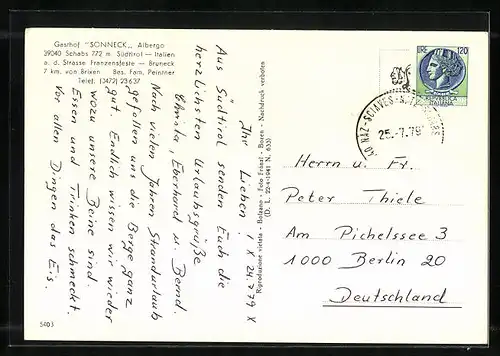 Gasthof "SONNECK" Albergo
39040 Schabs 772 m Südtirol — Italien
a. d. Strasse Franzensfeste — Bruneck
7 km. von Brixen Bes. Fam. Peintner
Telef. (0472) 23637
X 24.7.79 X
Ihr Lieben!
Aus Südtirol senden Euch die
herzlichsten Urlaubsgrüße
Christa, Eberhard u. Bernd.
Nach vielen Jahren Strandurlaub
gefallen uns die Berge ganz
gut. Endlich wissen wir wieder
wozu unsere Beine sind.
Essen und Trinken schmeckt.
Vor allen Dingen das Eis.
5603
Riproduzione vietata - Bolzano - Foto Frisial - Bozen - Nachdruck verboten
(D. L. 22-4-1941 N. 633)
LIRE 120
REPVBBLICA
ITALIANA
NAZ-SCIAVES
25.-7.79
Herrn u. Fr.
Peter Thiele
Am Pichelssee 3
1000 Berlin 20
Deutschland